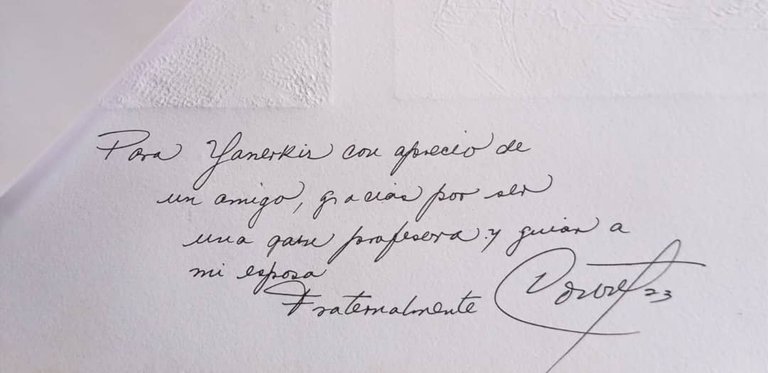 Para Yanerkis con aprecio de
un amigo, gracias por ser
una gran profesora y guiar a
mi esposa
Fraternalmente 23